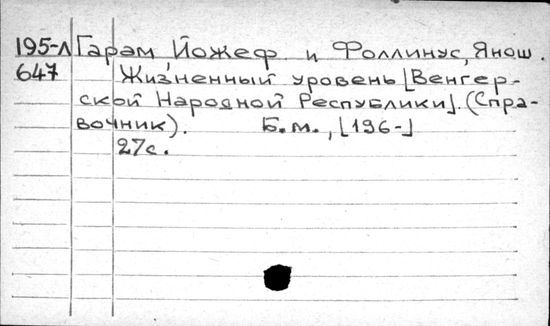 195-л Гарам, Йожеф и Фоллинус, Янош.
647 Жизненный уровень [Венгер-
ской Народной Республики]. (Спра-
вочник). Б.м., [196-]
27с.